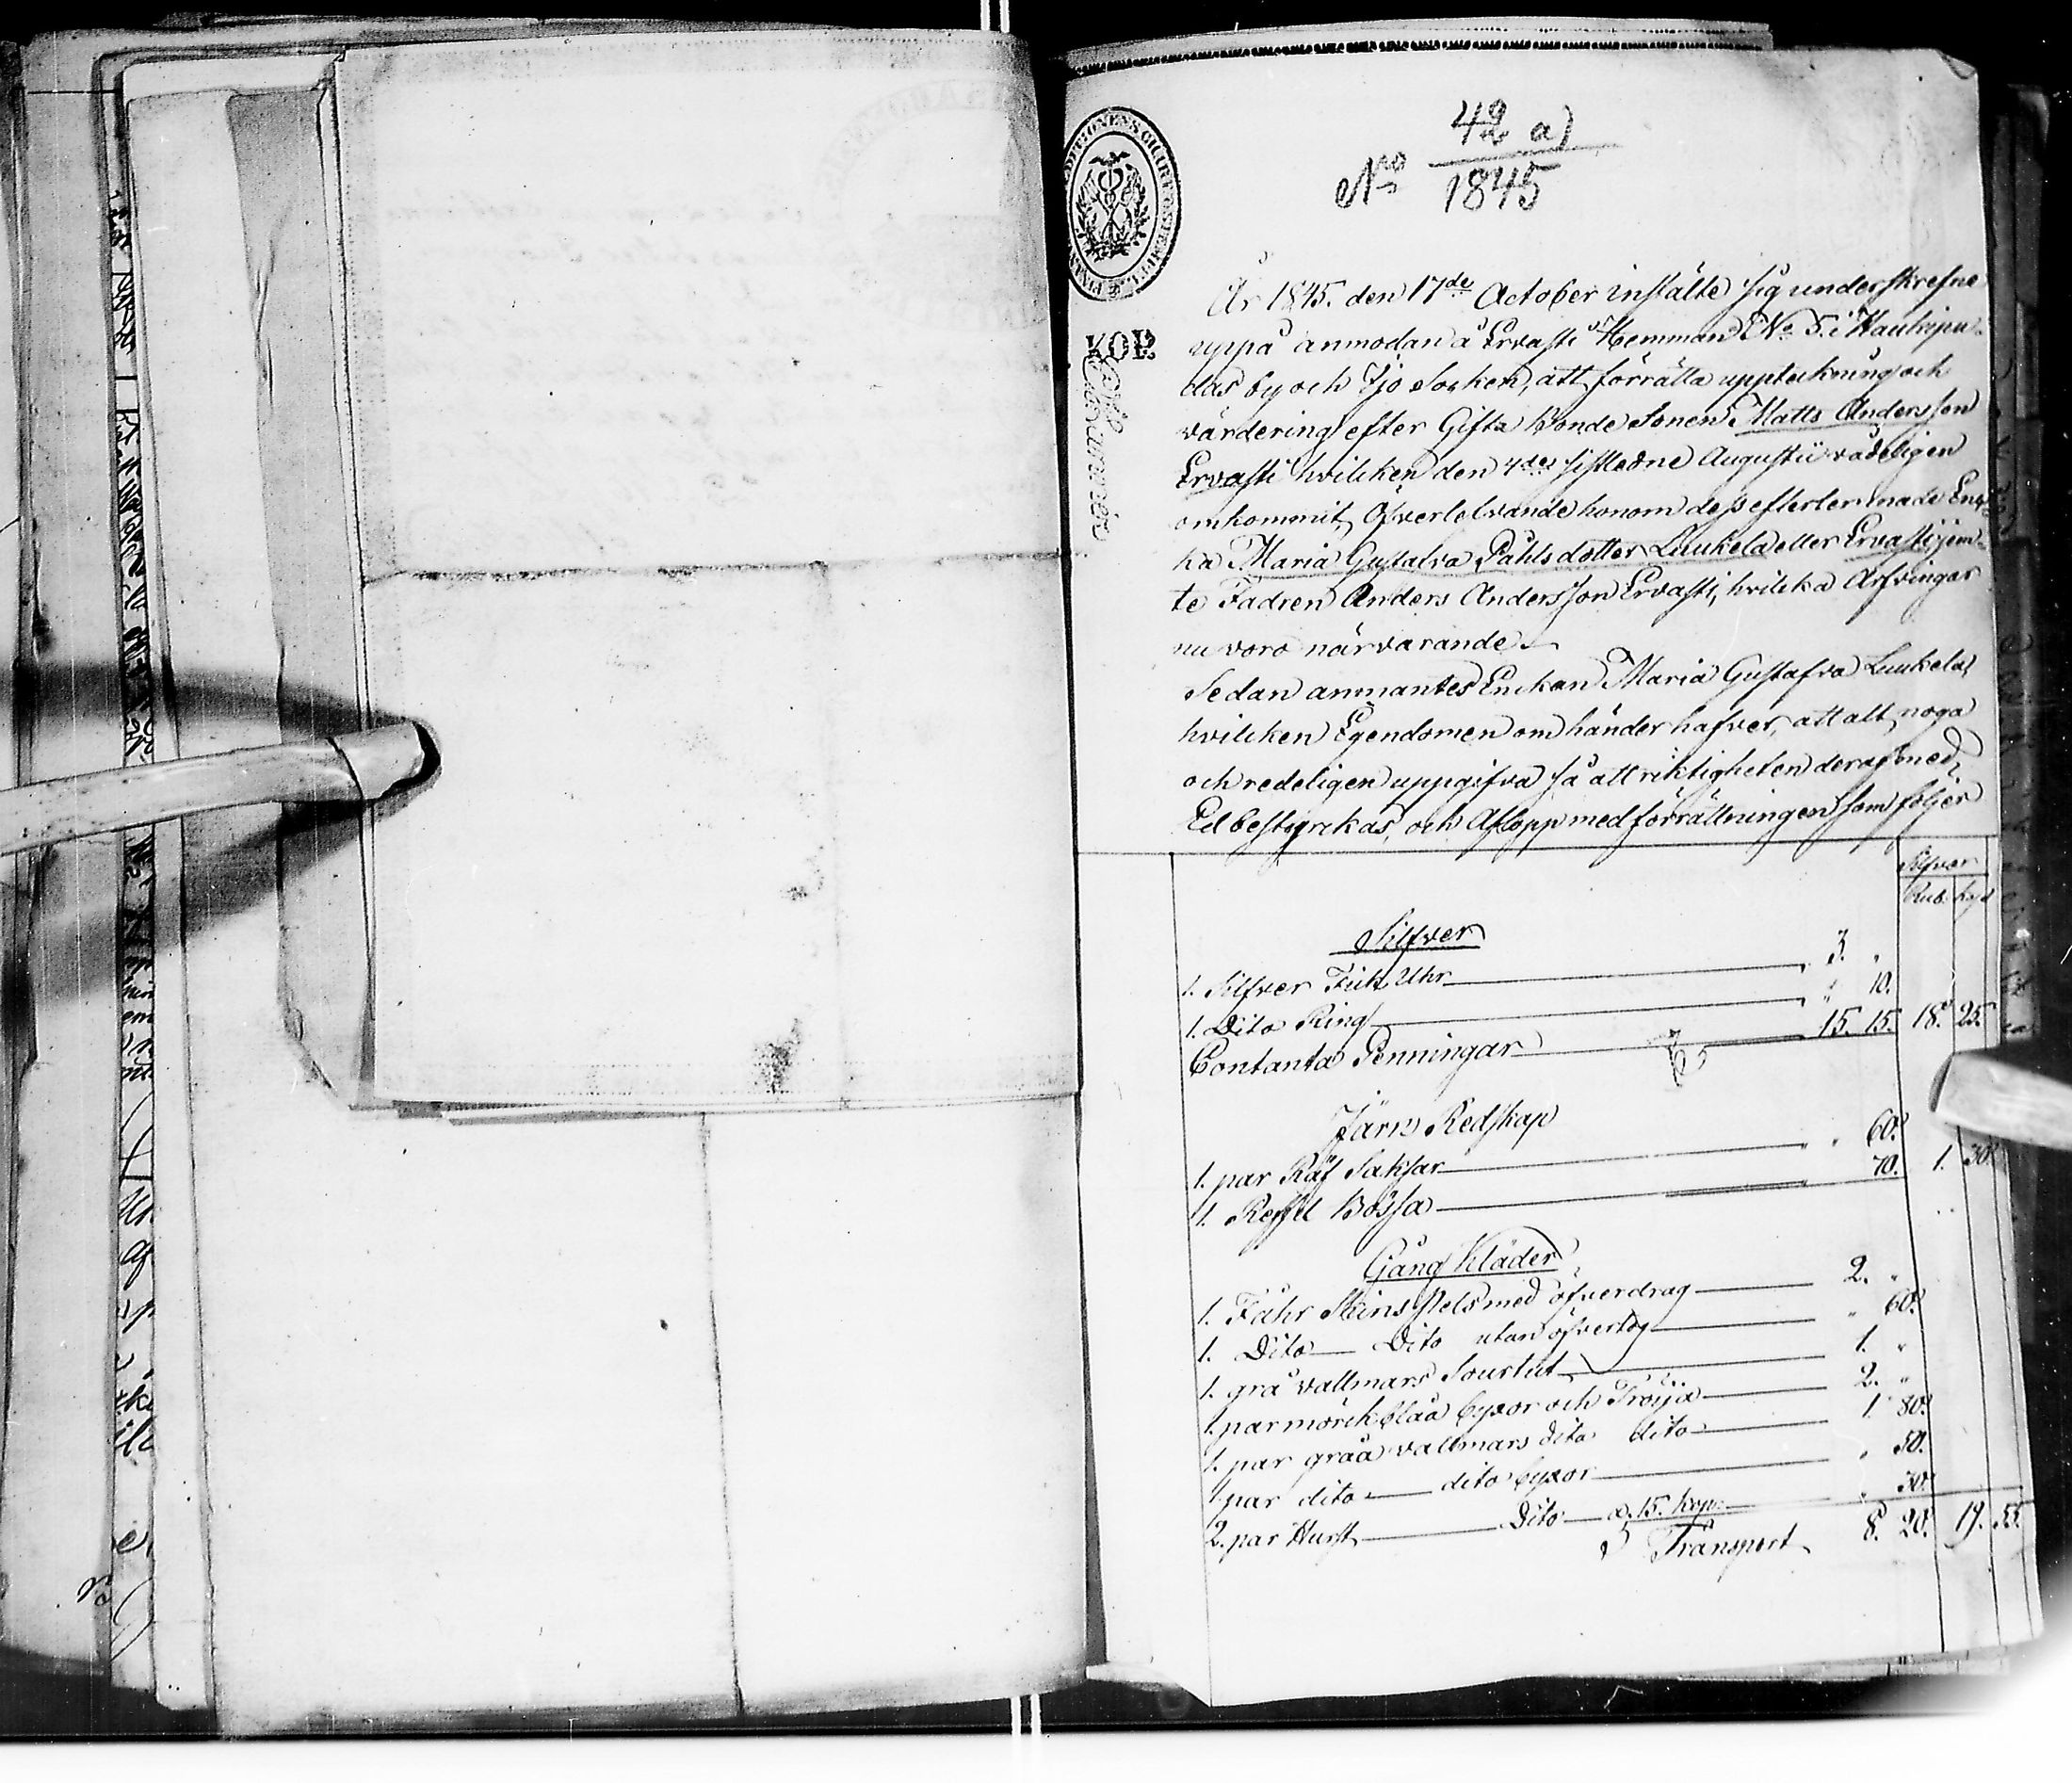 42 a)
No 1845
År 1845. den 17de October instälte sig underskrefne
uppå anmodan å Ervasti Hemman No 5. i Haukipu-
das by och Ijo Socken, att förrätta uppteckning och
värdering efter Gifta Bonde Sonen Matts Andersson
Ervasti hvilken den 4de sistledne Augustii vådeligen
omkommit, Öfverlefvande honom dess efterlemnade Enc-
ka Maria Gustafva Påhlsdotter Luukela eller Ervasti jem-
te Fadren Anders Andersson Ervasti, hvilka Arfvingar
nu voro närvarande.
Sedan anmantes Enckan Maria Gustafva Luukela,
hvilken Egendomen om händer hafver, att alt noga
och redeligen uppgifva så att riktigheten deraf med
Ed bestyrckas, och Aflopp med förrättningen som följer
KOP.
Silfver
Rub. kop
Silfver
1. Silfver Fick Uhr 3. "
1. Dito Ring " 10.
Contanta Penningar 15. 15. 18. 25.
Järn Redskap
1. par Räf Saksar " 60.
1. Reffel Bössa 70. 1. 30.
Gång Kläder
1. Fåhr Skins Pels med öfverdrag 2. "
1. Dito Dito utan öfvertog " 60.
1. grå vallmars Sourtut 1. "
1. par mörckblåa byxor och Tröija 2. "
1. par gråa vallmars dito dito 1. 80.
1 par dito dito byxor " 50.
2. par Hurst Dito a. 15. kop. " 30.
Transport 8. 20. 19. 55.